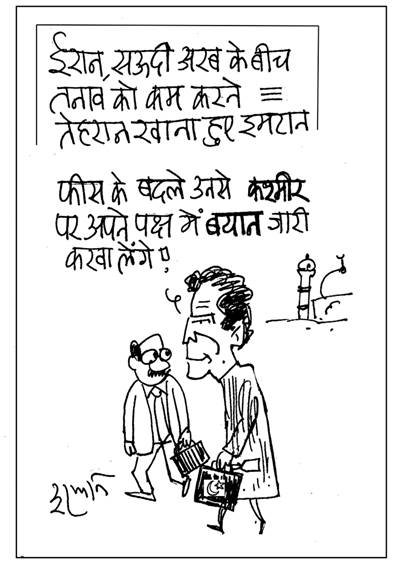 ईरान, सऊदी अरब के बीच
तनाव को कम करने
तेहरान रवाना हुए इमरान
फीस के बदले उनसे कश्मीर
पर अपने पक्ष में बयान जारी
करवा लेंगे!